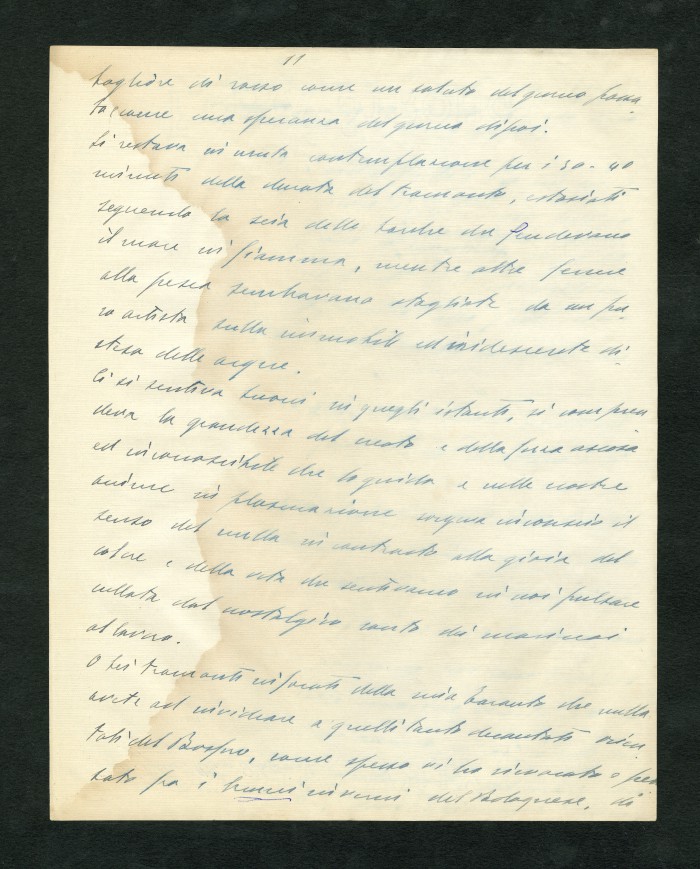 11
bagliore di rosso come un saluto del giorno passa
to, come una speranza del giorno dipoi.
Si restava in muta contemplazione per i 30 - 40
minuti della durata del tramonto, estasiati
seguendo la scia delle barche che fendevano
il mare in fiamma, mentre altre ferme
alla pesca sembravano stagliate da un
ro artista sulla immobile ed iridescente di-
stesa delle acque.
Ci si sentiva buoni in quegli istanti, si compren
deva la grandezza del creato e della forza ascosa
ed inconoscibile che lo guida e nelle nostre
anime in plasmazione sorgeva inconscio il
senso del nulla in contrasto alla gioia del
colore e della vita che sentivamo in noi pulsare
cullata dal nostalgico canto dei marinai
al lavoro.
O bei tramonti infuocati della mia Taranto che nulla
avete ad invidiare a quelli tanto decantati orien
tali del Bosforo, come spesso vi ho rievocato e pen
sato fra i inverni del Bolognese, di